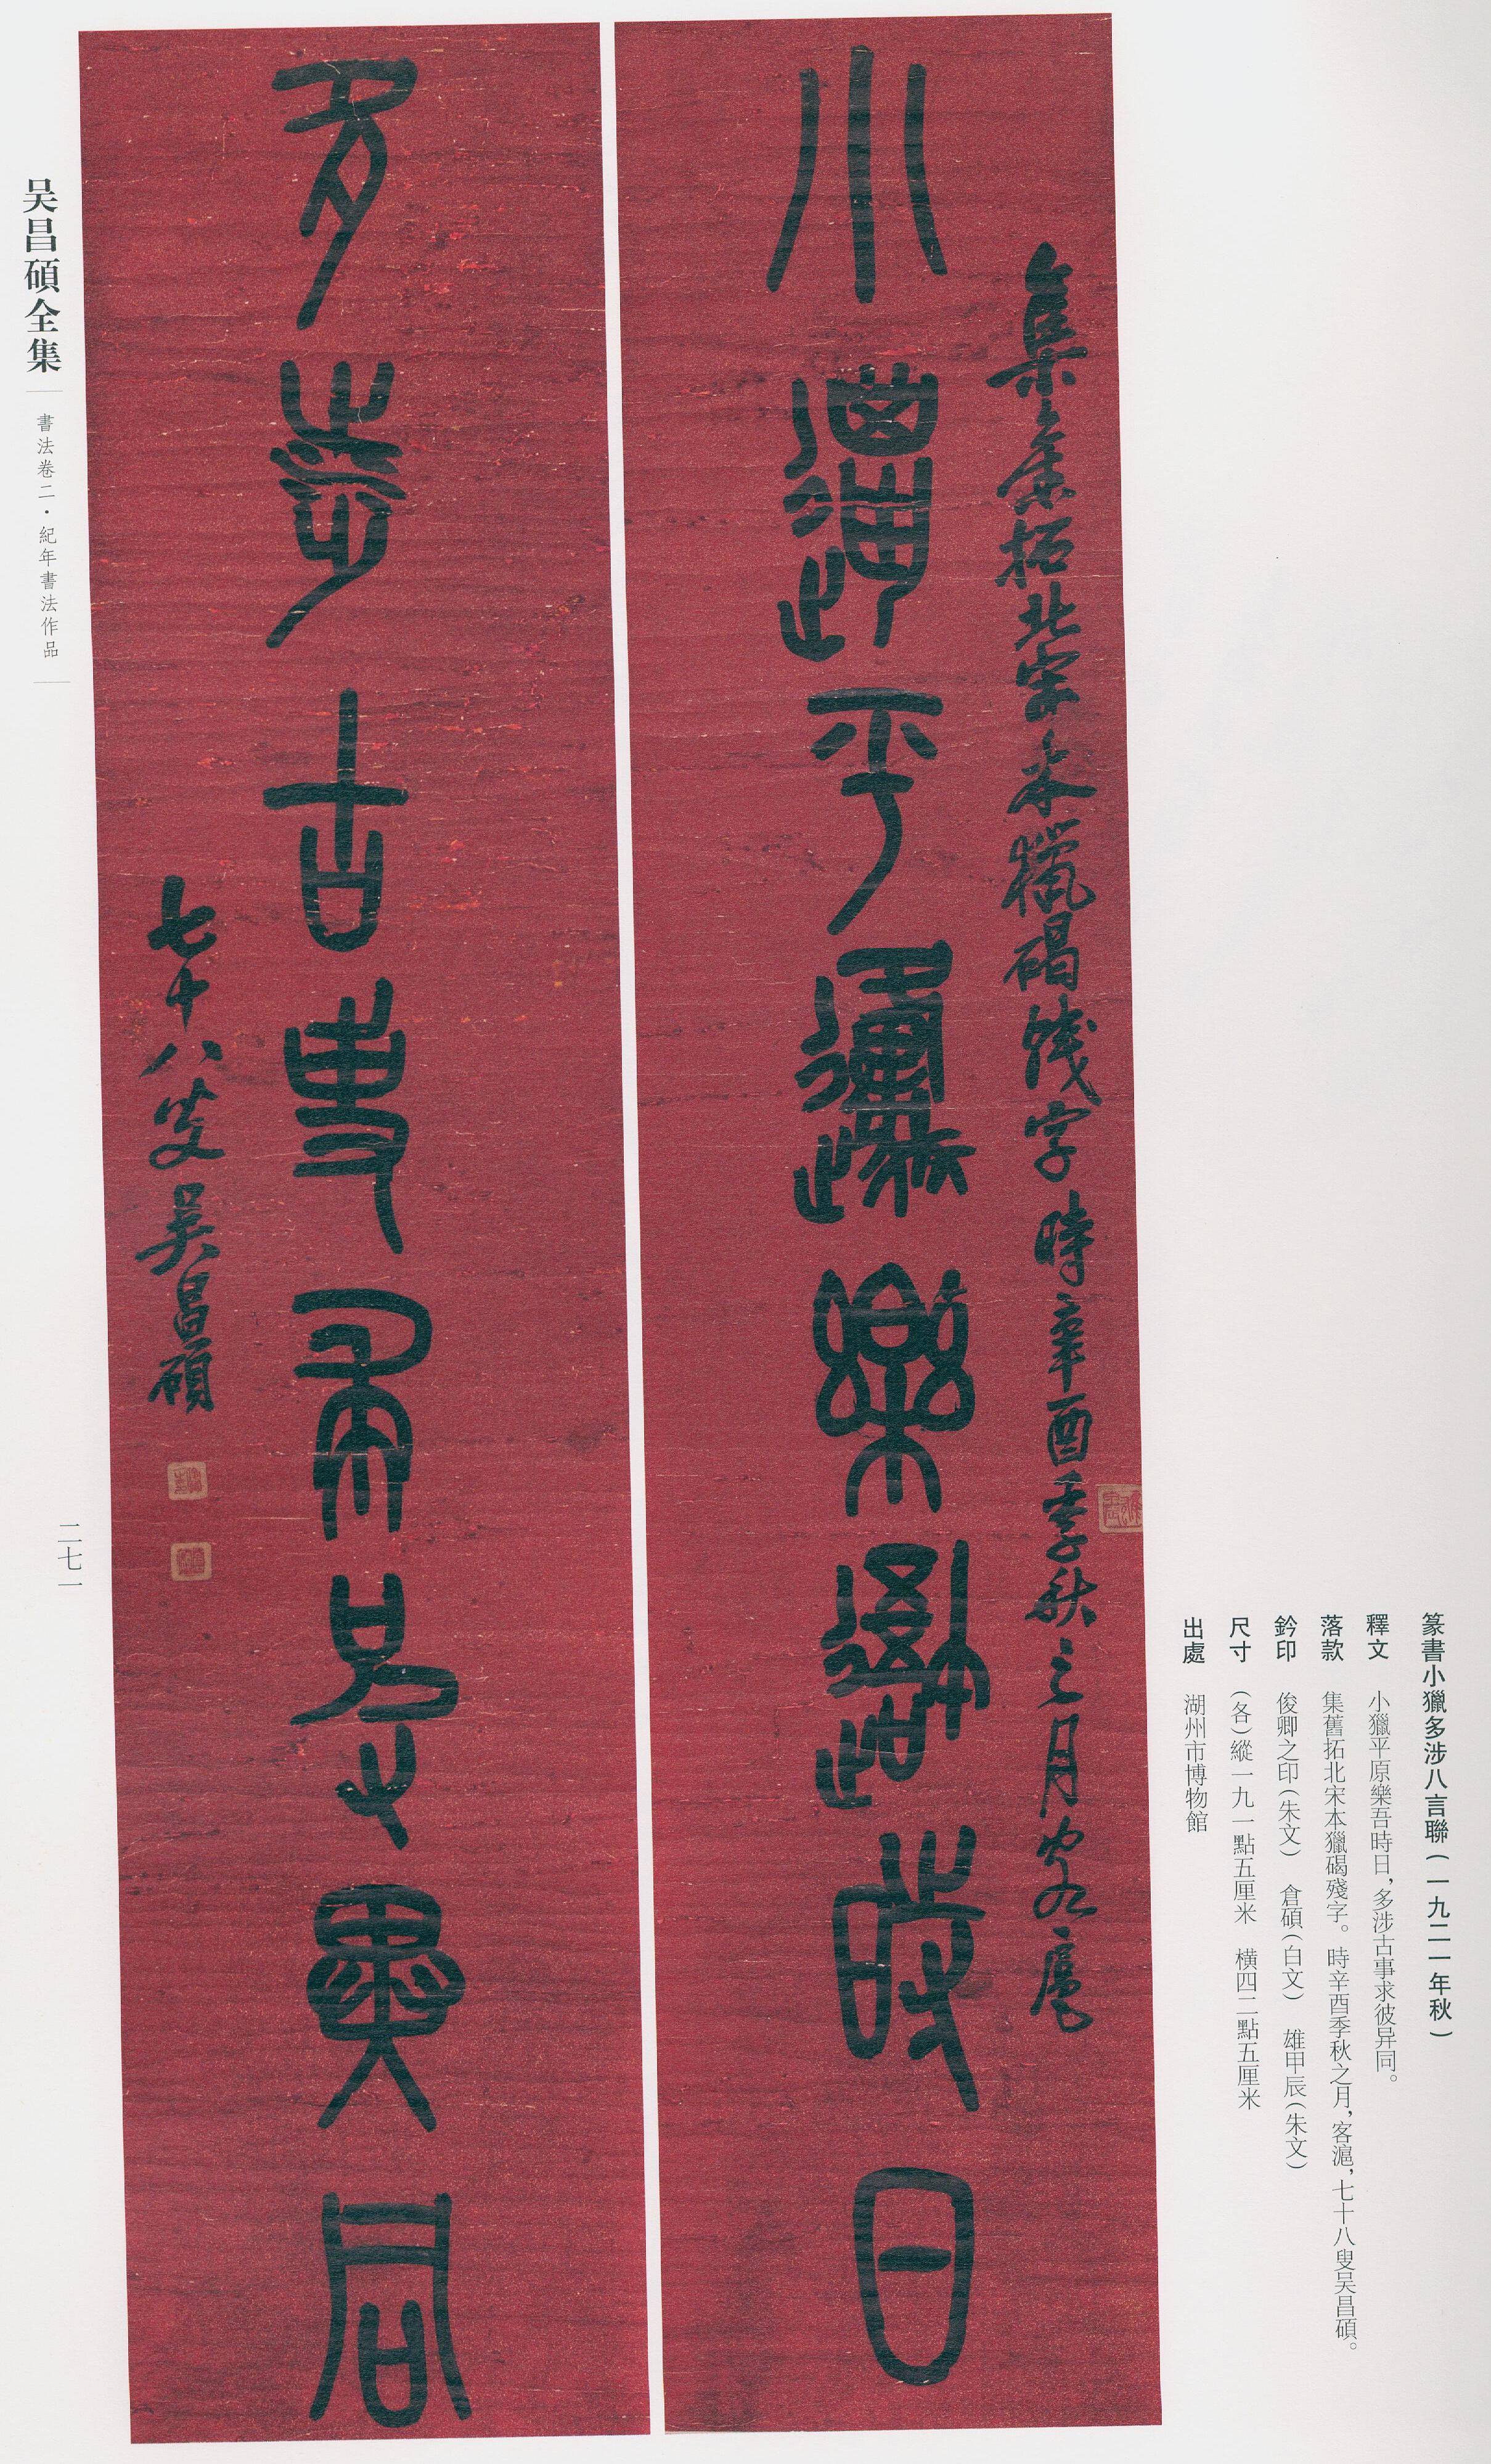 篆書小獵多涉八言聯（一九二一年秋）
釋文　小獵平原樂吾時日，多涉古事求彼异同。
落款　集舊拓北宋本獵碣殘字。時辛酉季秋之月，客滬，七十八叟吴昌碩。
鈐印　俊卿之印（朱文）　倉碩（白文）　雄甲辰（朱文）
尺寸　（各）縱一九一點五厘米　橫四二點五厘米
出處　湖州市博物館
集舊拓北宋本獵碣殘字時辛酉季秋之月客滬
小獵平原樂吾時日
多涉古事求彼異同
七十八叟吴昌碩
吴昌碩全集
書法卷二·紀年書法作品
二七一